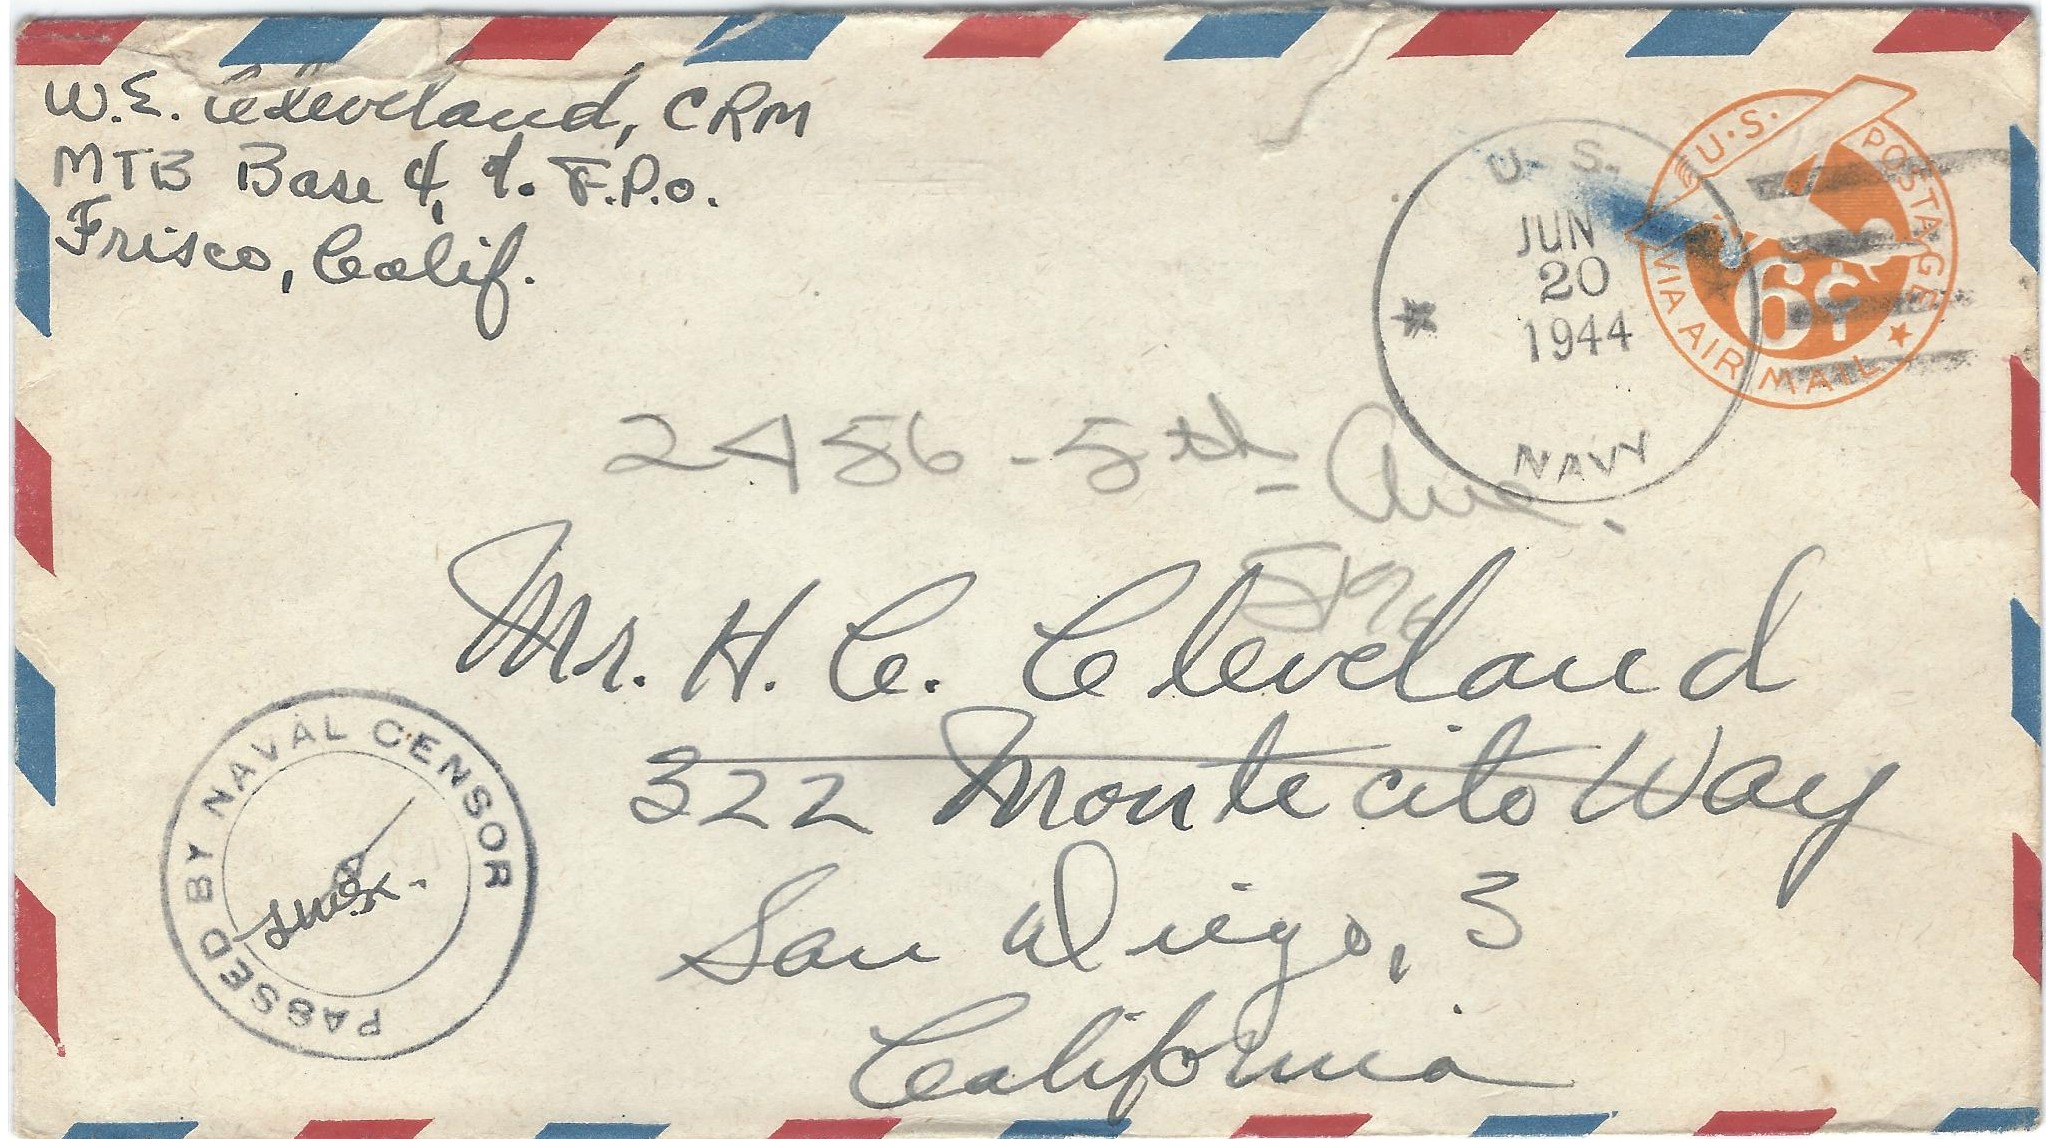 W.E. Cleveland, CRM
MTB Base 4, F.P.O.
Frisco, Calif.
U.S. POSTAGE
VIA AIR MAIL
6¢
U. S.
JUN
20
1944
NAVY
2486 - 5th Ave.
Mr. H. C. Cleveland
322 Montecito Way
San Diego, 3
California
PASSED BY NAVAL CENSOR